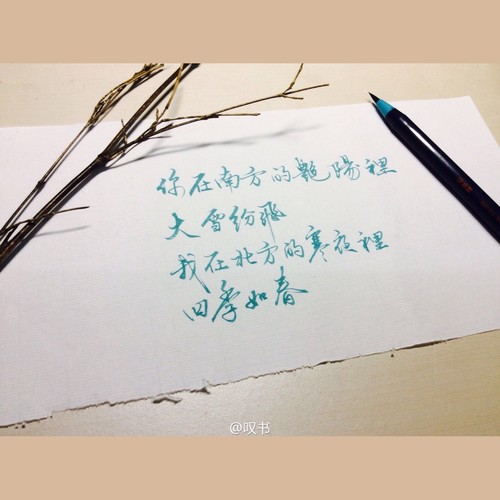 你在南方的艷陽裡
大雪纷飛
我在北方的寒夜裡
四季如春
@叹书